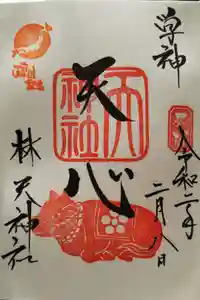 学神
令和二年
二月八日
天心
天
神社
林天神社